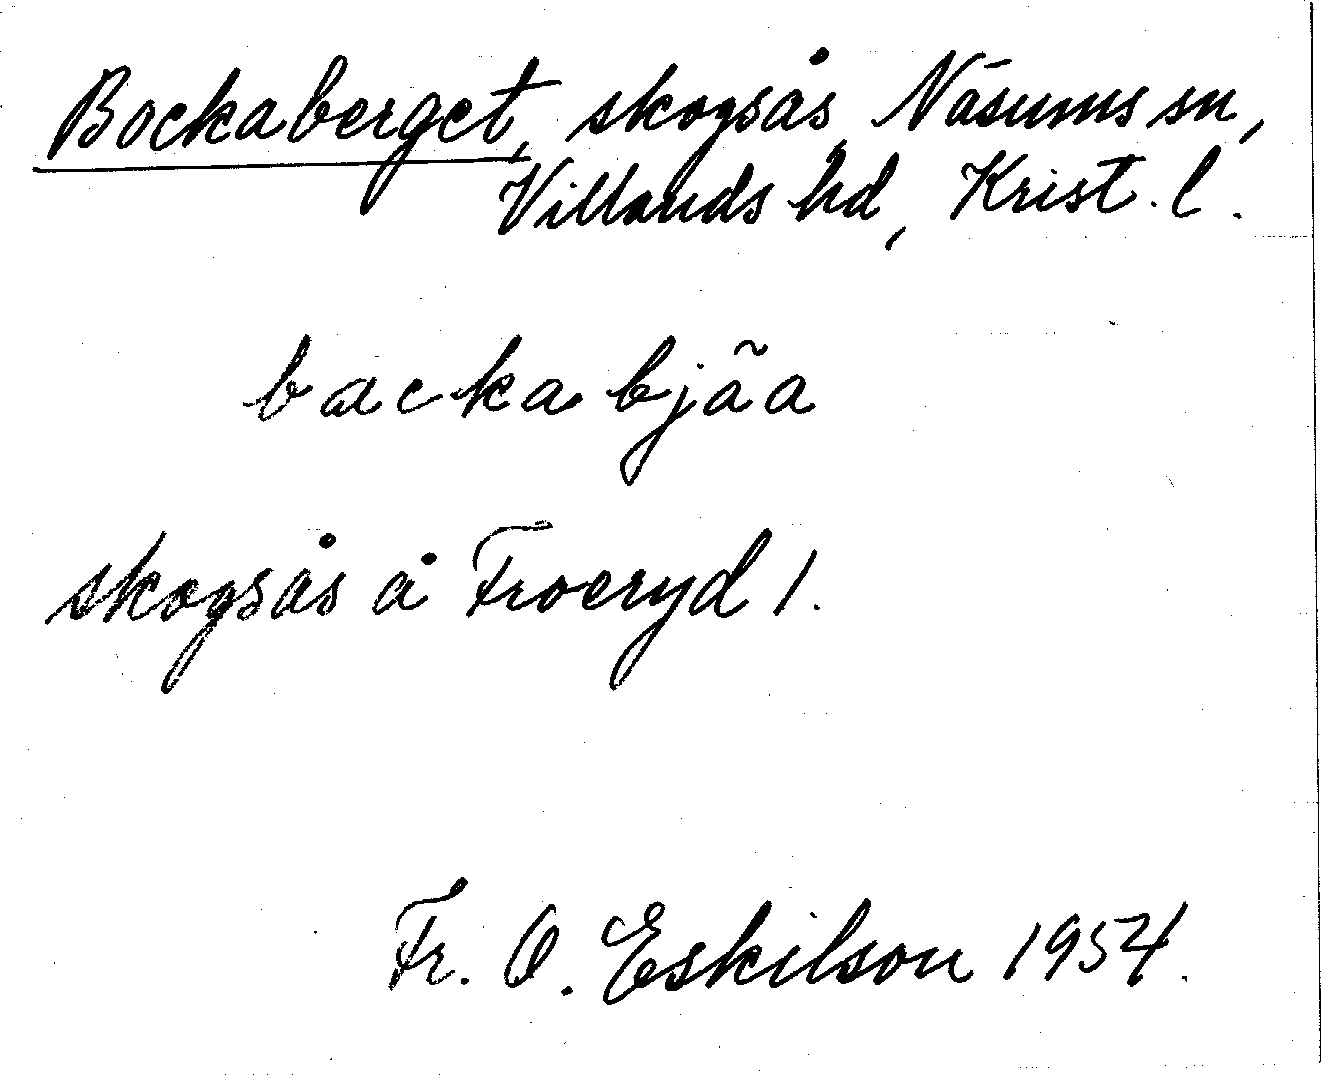 Bockaberget, skogsås, Näsums sn,
Villands hd, Krist. l.
backabjãa
skogsås å Froeryd 1.
Fr. O. Eskilson 1954.